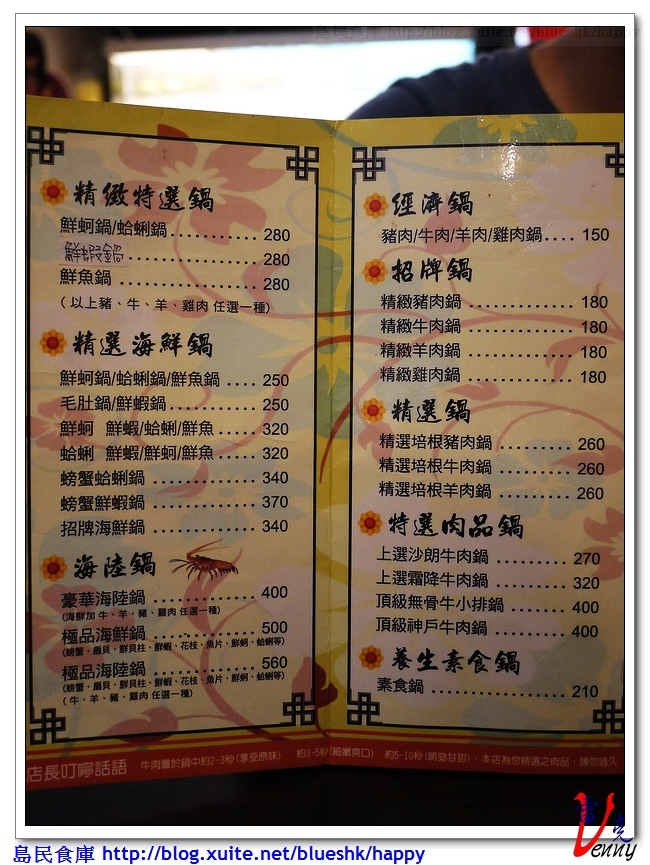 島民食庫 http://blog.xuite.net/blueshk/happy
精緻特選鍋
鮮蚵鍋/蛤蜊鍋........... 280
鮮蝦鍋................. 280
鮮魚鍋................. 280
(以上豬、牛、羊、雞肉 任選一種)
精選海鮮鍋
鮮蚵鍋/蛤蜊鍋/鮮魚鍋 .... 250
毛肚鍋/鮮蝦鍋............ 250
鮮蚵 鮮蝦/蛤蜊/鮮魚..... 320
蛤蜊 鮮蝦/鮮蚵/鮮魚..... 320
螃蟹蛤蜊鍋 .............. 340
螃蟹鮮蝦鍋 .............. 370
招牌海鮮鍋 .............. 340
海陸鍋
豪華海陸鍋 .............. 400
(海鮮加 牛、羊、豬、雞肉 任選一種)
極品海鮮鍋 .............. 500
(螃蟹、扇貝、鮮貝柱、鮮蝦、花枝、魚片、鮮蚵、蛤蜊等)
極品海陸鍋 .............. 560
(螃蟹、扇貝、鮮貝柱、鮮蝦、花枝、魚片、鮮蚵、蛤蜊等)
(牛、羊、豬、雞肉 任選一種)
經濟鍋
豬肉/牛肉/羊肉/雞肉鍋.... 150
招牌鍋
精緻豬肉鍋 .............. 180
精緻牛肉鍋 .............. 180
精緻羊肉鍋 .............. 180
精緻雞肉鍋 .............. 180
精選鍋
精選培根豬肉鍋 ......... 260
精選培根牛肉鍋 ......... 260
精選培根羊肉鍋 ......... 260
特選肉品鍋
上選沙朗牛肉鍋 .......... 270
上選霜降牛肉鍋 .......... 320
頂級無骨牛小排鍋 ....... 400
頂級神戶牛肉鍋 ......... 400
養生素食鍋
素食鍋 .................. 210
店長叮嚀話語 牛肉置於鍋中約2-3秒(享受原味) 約3-5秒(細嫩爽口) 約5-10秒(嚼勁甘甜)，本店為您精選之肉品，請勿過久
Venny
島民食庫 http://blog.xuite.net/blueshk/happy